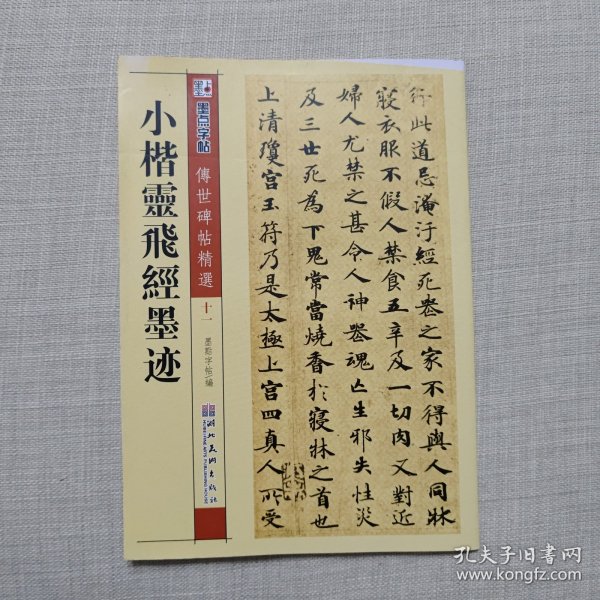 小楷靈飛經墨迹
墨点
墨点字帖
傳世碑帖精選
十一
墨點字帖 編
湖北美術出版社
HUBEI FINE ARTS PUBLISHING HOUSE
行此道忌淹汙經死丧之家不得與人同牀
寢衣服不假人禁食五辛及一切肉又對近
婦人尤禁之甚令人神丧魂亡生邪失性災
及三世死為下鬼常當燒香於寢牀之首也
上清瓊宫玉符乃是太極上宫四真人所受
孔夫子旧书网
www.kongfz.com